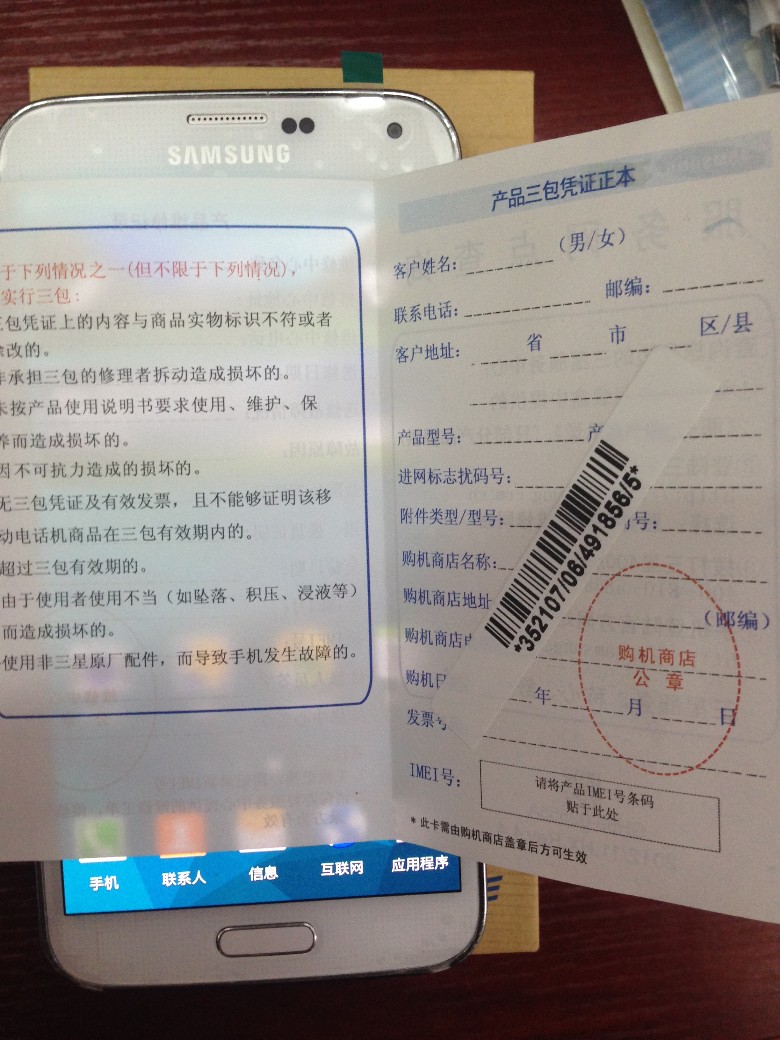 SAMSUNG
于下列情况之一(但不限于下列情况),
实行三包:
三包凭证上的内容与商品实物标识不符或者
涂改的。
非承担三包的修理者拆动造成损坏的。
未按产品使用说明书要求使用、维护、保
养而造成损坏的。
因不可抗力造成的损坏的。
无三包凭证及有效发票，且不能够证明该移
动电话机商品在三包有效期内的。
超过三包有效期的。
由于使用者使用不当（如坠落、积压、浸液等）
而造成损坏的。
使用非三星原厂配件，而导致手机发生故障的。
手机
联系人
信息
互联网
应用程序
产品三包凭证正本
客户姓名: （男/女）
联系电话: 邮编:
客户地址: 省 市 区/县
产品型号: 产
进网标志扰码号:
附件类型/型号: 号:
购机商店名称:
购机商店地址 （邮编）
购机商店
购机日 年 月 日
发票号
IMEI号:
请将产品IMEI号条码
贴于此处
* 此卡需由购机商店盖章后方可生效
*352107/06/491856/5*
购机商店
公 章